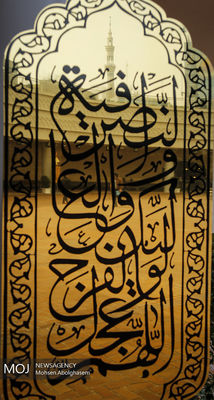 اللهم عجل
لوليك الفرج
والعافية
والنصر
MOJ
NEWSAGENCY
Mohsen Abolghasem